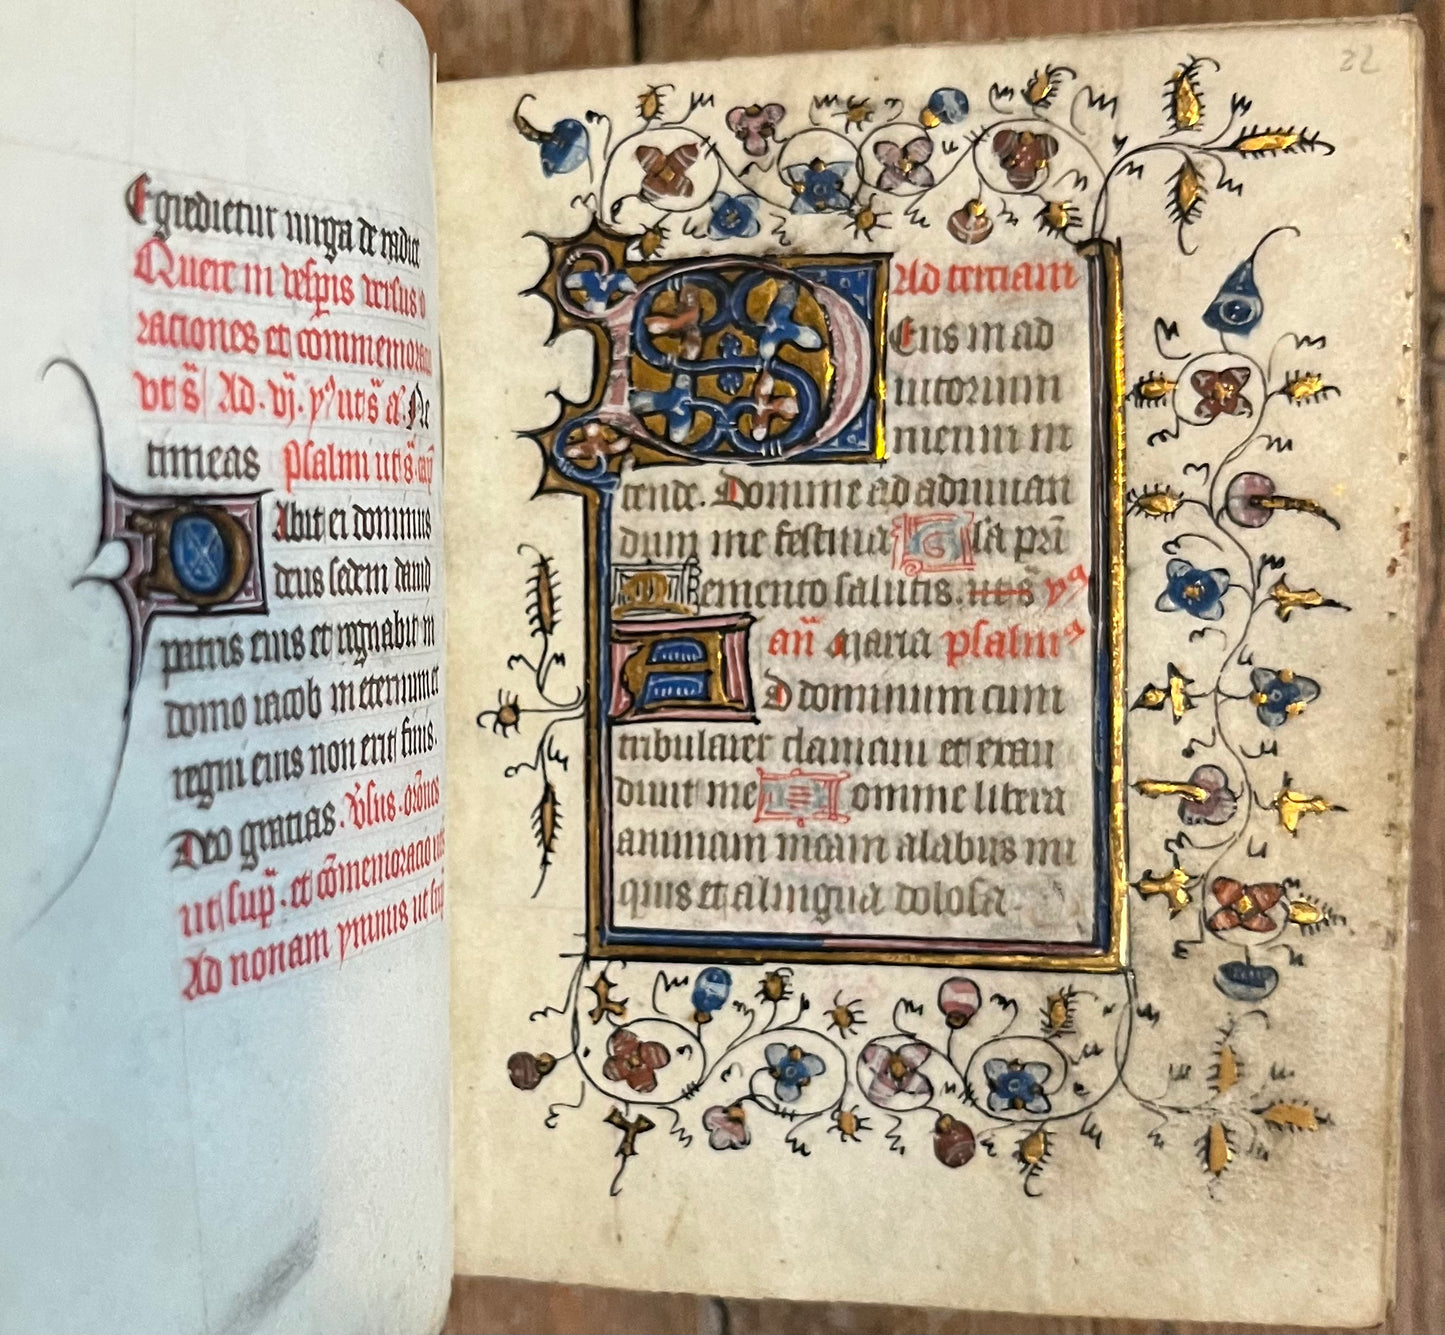 Egredietur uirga de radice
Quere in vesp̄is versus o
rationes et cōmemora
vt s̄ Ad . vj . yꝰ ut s̄ a᷎ . Ne
timeas psalmi ut s̄
Dabit ei dominus
deus sedem dauid
patris eius et regnabit in
domo iacob in eternum et
regni eius non erit finis .
Deo gratias . v̄sus . orōnes
ut sup̄ . et cōmemoracio
Ad nonam ymnus ut sup̄
22
Ad terciam
Deus in ad
iutorium
meum in
tende . Domine ad adiuuan
dum me festina Gl̄a pr̄i
Memento salutis . ut s̄ pꝰ
an̄ Maria psalmꝰ
Ad dominum cum
tribularer clamaui et exau
diuit me Domine libera
animam meam a labijs ini
quis et a lingua dolosa .